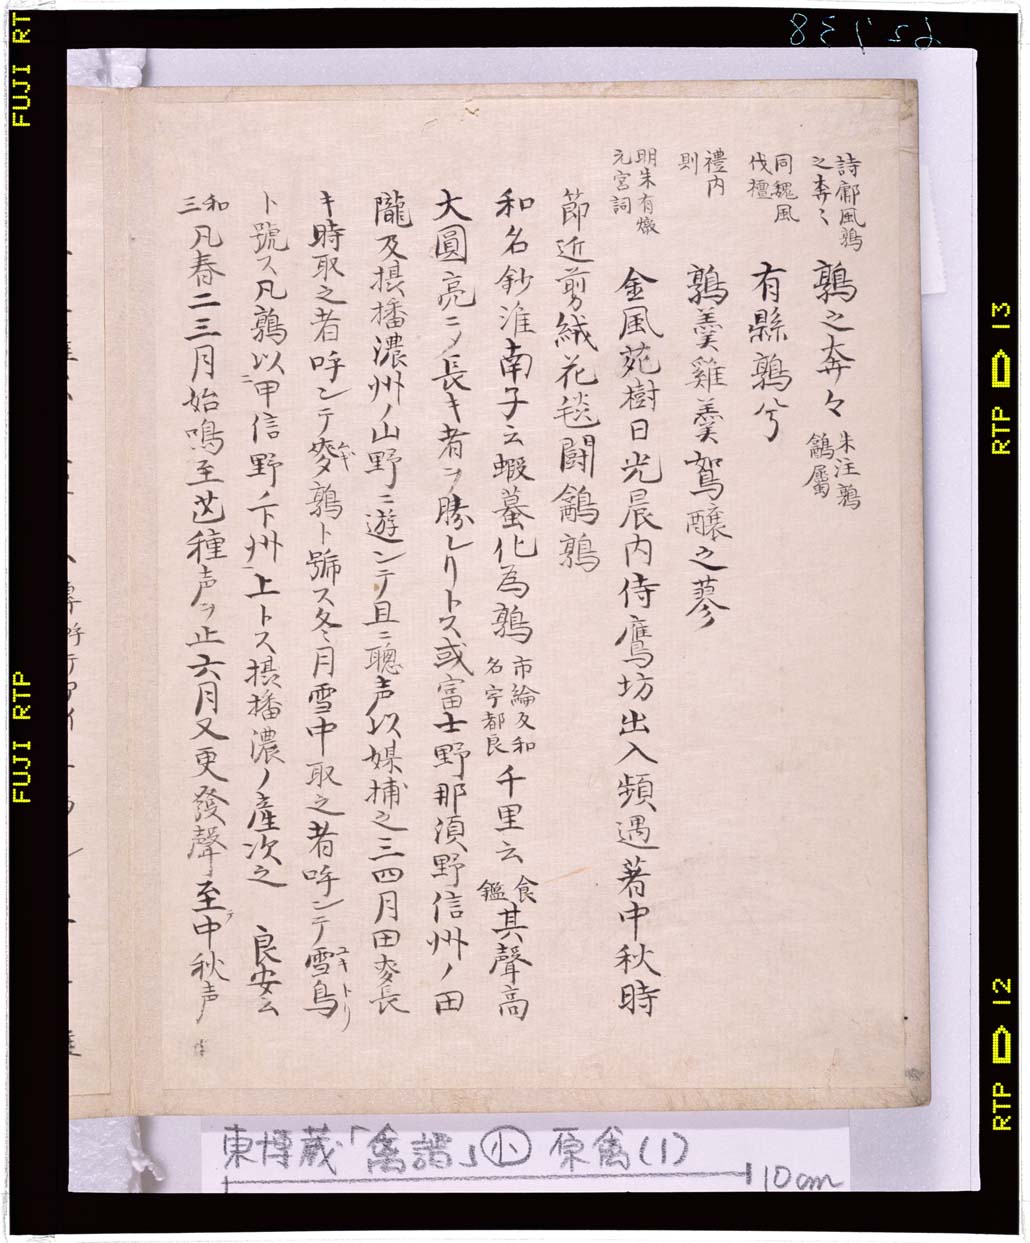 詩鄘風鶉
之奔〻
鶉之奔々
朱注鶉
鷂屬
同魏風
伐檀
有縣鶉兮
禮内
則
鶉羹雞羹鴽釀之蓼
明朱有燉
元宮詞
金風苑樹日光晨内侍鷹坊出入頻遇着中秋時
節近剪絨花毯鬪鵪鶉
和名鈔淮南子云蝦蟇化為鶉
市綸反和
名宇都良
千里云
食
鑑
其聲高
大圓亮ニノ長キ者ヲ勝レリトス或富士野那須野信州ノ田
隴及摂播濃州ノ山野ニ遊ンテ且ニ聰声以媒捕之三四月田麥長
キ時取之者呼ンテ麥鶉ト號ス冬月雪中取之者呼ンテ雪鳥
ト號ス凡鶉以甲信野下州上トス摂播濃ノ產次之 良安云
和
三
凡春二三月始鳴至芒種声ヲ止六月又更發聲至中秋声
東博蔵「禽譜」小 原禽(1)
10cm
FUJI RTP
RTP 13
RTP 12
FUJI RT